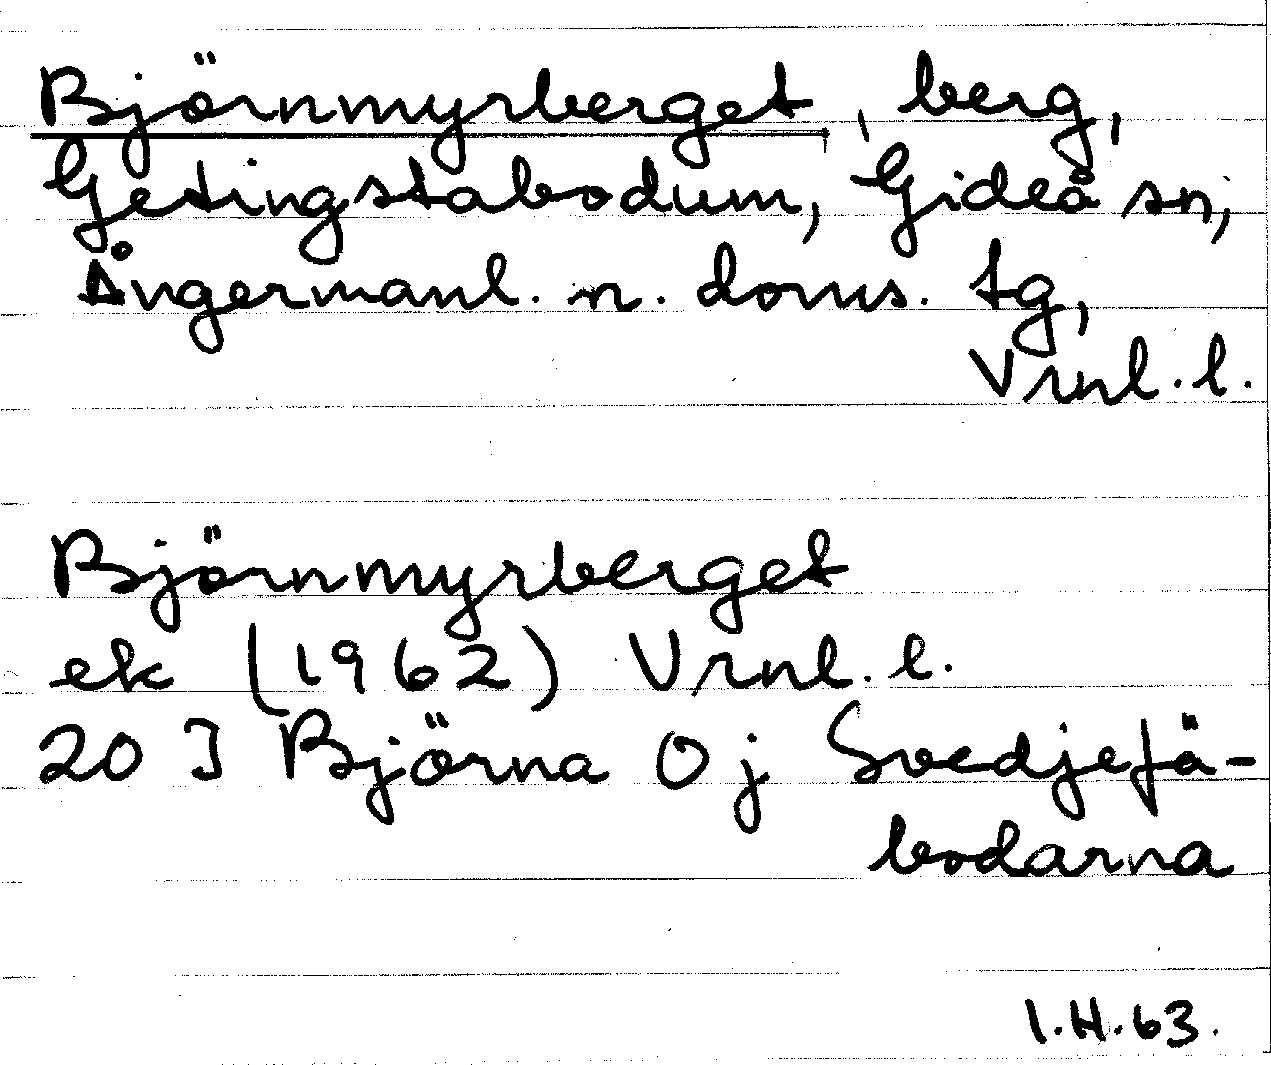 Björnmyrberget, berg,
Getingstabodum, Gideå sn,
Ångermanl. n. doms. tg,
Vrnl. l.
Björnmyrberget
ek (1962) Vrnl. l.
20 J Björna 0 j Svedjefä-
bodarna
I.H.63.